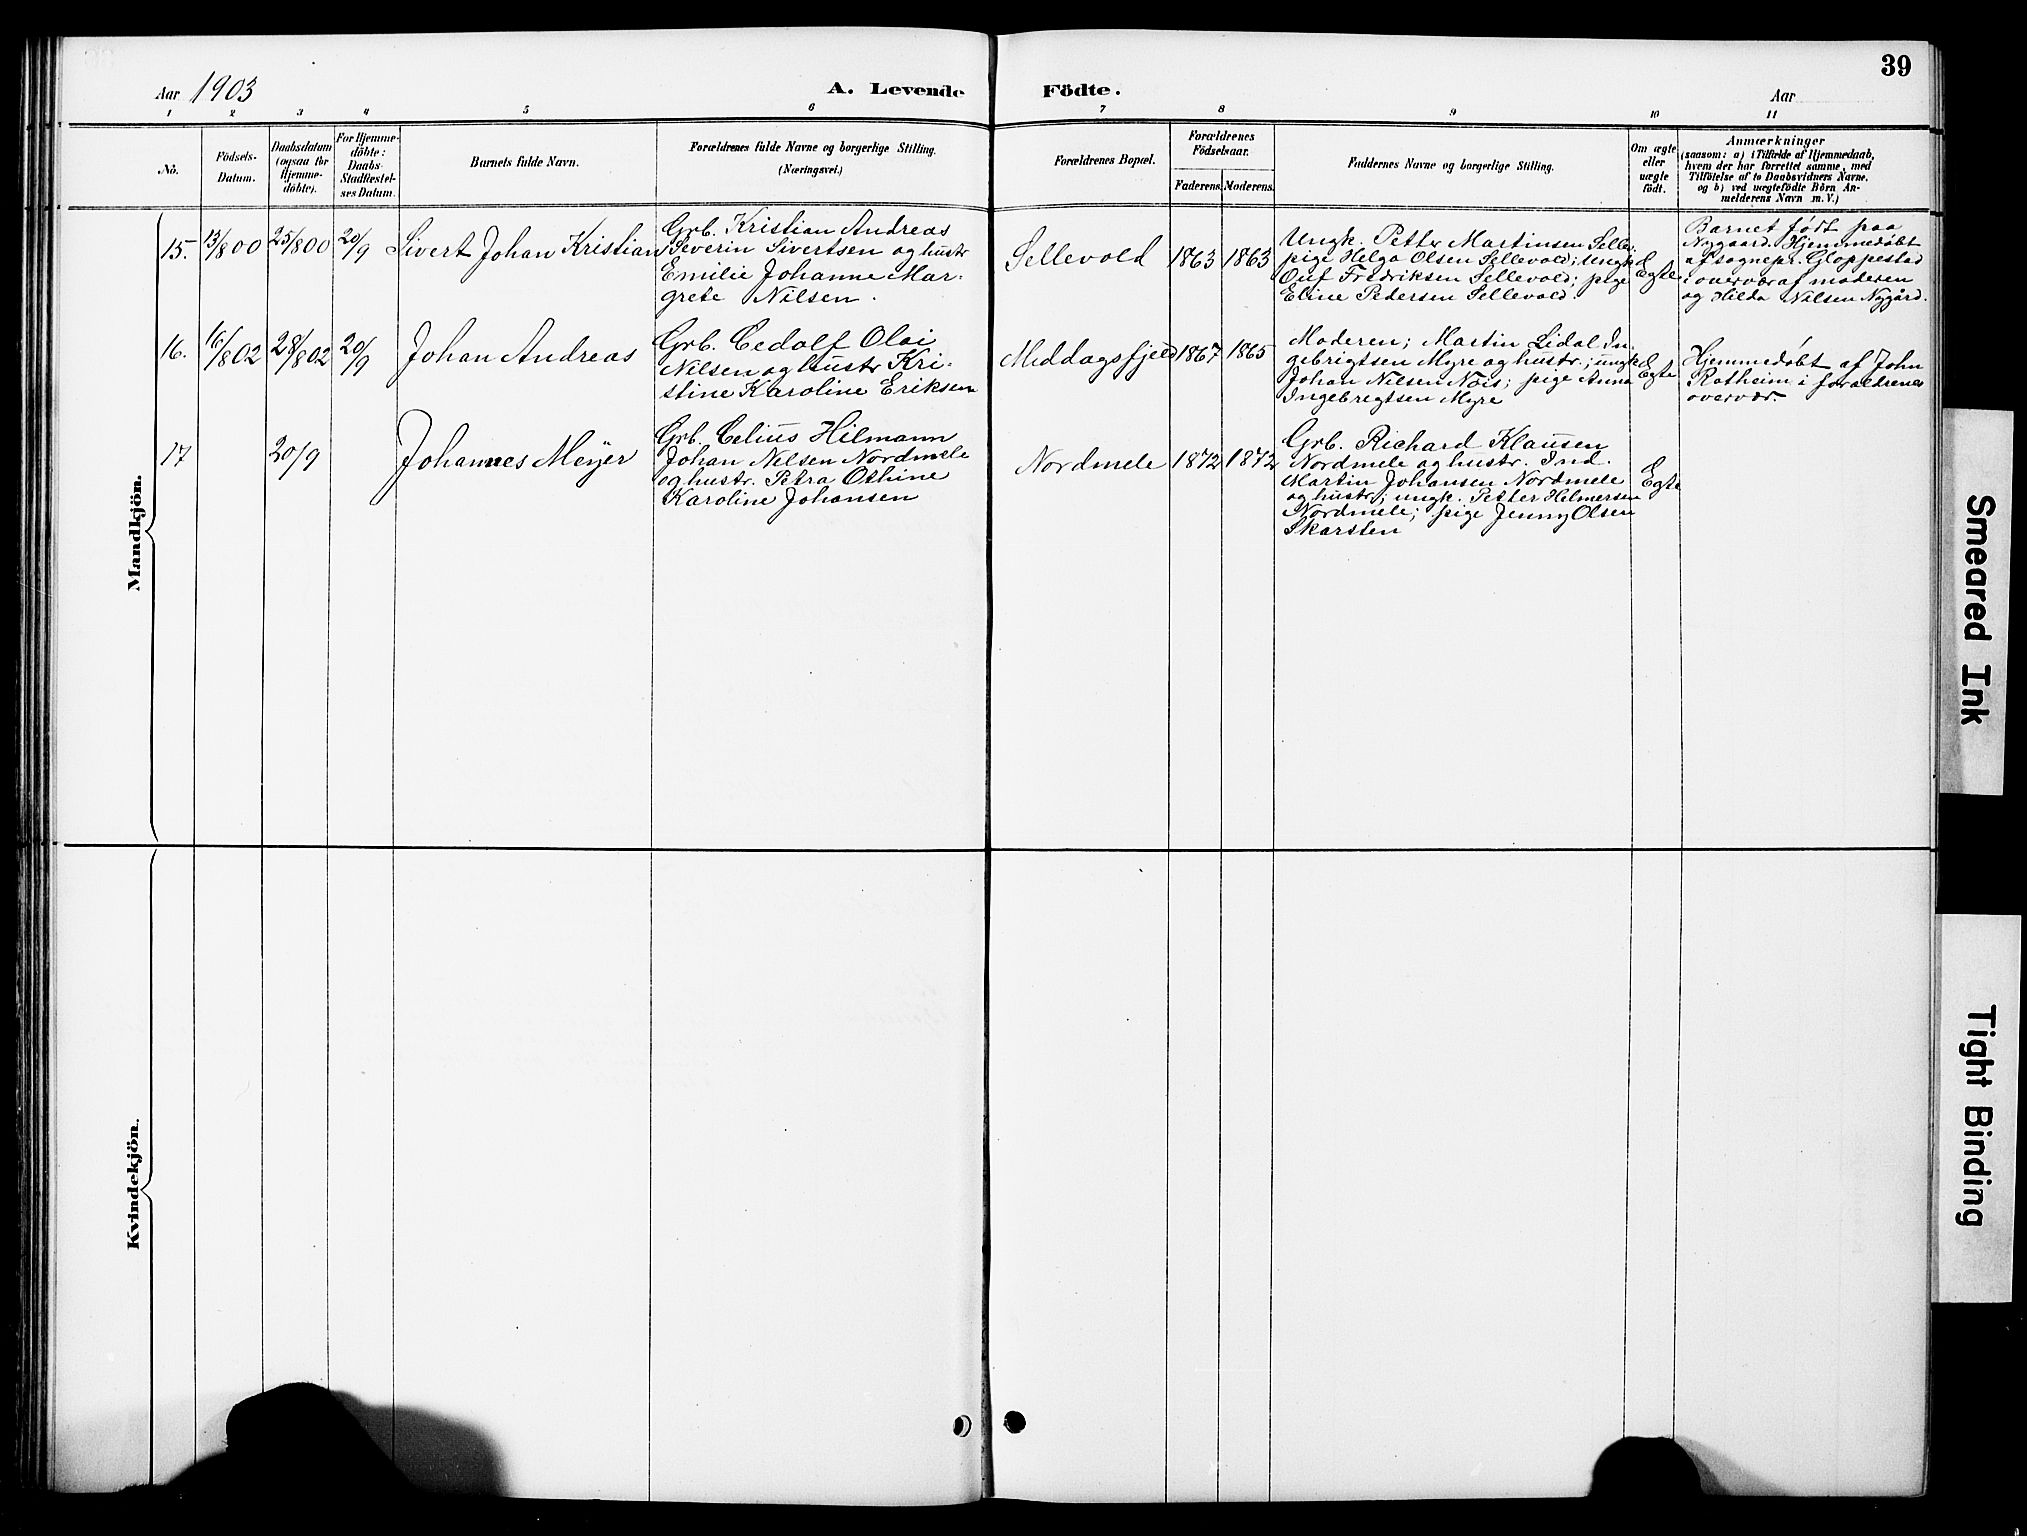 39
Aar 1903
A. Levende Födte.
Aar
1 2 3 4 5 6 7 8 9 10 11
No.
Födsels-
Datum.
Daabsdatum
(ogsaa for
Hjemme-
döbte).
For Hjemme-
döbte:
Daabs-
Stadfæstel-
ses Datum.
Barnets fulde Navn.
Forældrenes fulde Navne og borgerlige Stilling.
(Næringsvei.)
Forældrenes Bopæl.
Forældrenes
Födselsaar.
Faderens. Moderens.
Faddernes Navne og borgerlige Stilling.
Om ægte
eller
uægte
födt.
Anmærkninger
(saasom: a) i Tilfælde af Hjemmedaab,
hvem der har forrettet samme, med
Tilföielse af to Daabsvidners Navne,
og b) ved uægtefödte Börn An-
melderens Navn m. V.)
Mandkjön.
15. 13/8 00 25/8 00 20/9 Sivert Johan Kristian
Grb. Kristian Andreas
Severin Sivertsen og hustr
Emilie Johanne Mar-
grete Nilsen.
Sellevold 1863 1863
Ungk. Petter Martinsen Selle;
pige Helga Olsen Sellevold; ungk
Ouf Fredriksen Sellevold; pige
Eline Pedersen Sellevold.
Egte
Barnet født paa
Nygaard. Hjemmedøbt
af sognepr. Gloppestad
i overvær af moderen
og Hilda Nilsen Nygård.
16. 16/8 02 28/8 02 20/9 Johan Andreas
Grb. Cedolf Olai
Nilsen og hustr Kri-
stine Karoline Eriksen
Middagsfjeld 1867 1865
Moderen; Martin Lidal In-
gebrigtsen Myre og hustr.; ungk
Johan Nilsen Nöis; pige Anna
Ingebrigtsen Myre
Egte
Hjemmedøbt af John
Rotheim i forældrenes
overvær.
17 20/9 Johannes Meyer
Grb. Celius Hilmann
Johan Nilsen Nordmele
og hustr. Petra Othine
Karoline Johansen
Nordmele 1872 1872
Grb. Richard Klausen
Nordmele og hustr. Ind.
Martin Johansen Nordmele
og hustr; ungk. Petter Hilmersen
Nordmele; pige Jenny Olsen
Skarsten
Egte
Kvindekjön.
Smeared Ink
Tight Binding